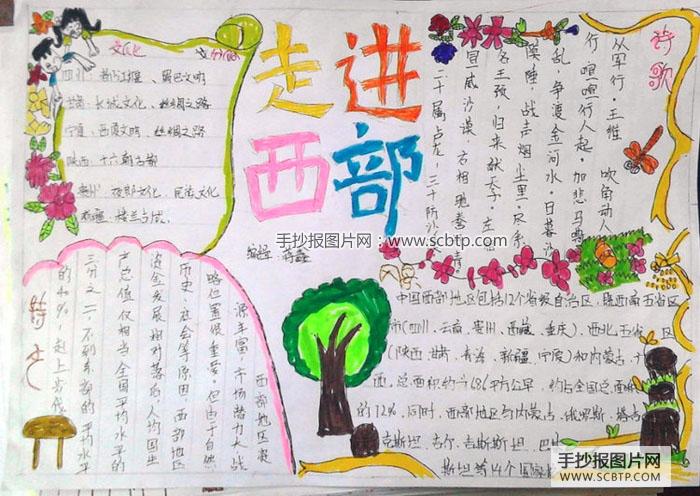 走进
西部
编辑：
文化
四川：都江堰、蜀巴文明
甘肃：长城文化、丝绸之路
宁夏：西夏文明、丝绸之路
陕西：十六朝古都
贵州：夜郎文化、民族文化
楼兰古城
诗歌
从军行·王维
吹角动人
行，喧喧行人起。加悲马尊
乱，争渡金河水。日暮沙
漠陲，战声烟尘里。尽系
名王颈，归来献天子。左
冒威沙漠，方相驰
二十属卢龙，三十防沙
手抄报图片网：
www.scbtp.com
特色
西部地区
源丰富，市场潜力大，战
略位置很重要。但由于自然、
历史、社会等原因，西部地区
经济发展相对落后，人均国生
产总值仅相当全国平均水平的
三分之二，不到东部的平均水平
的40%，
中国西部地区包括12个省级自治区，既西南五省区
市(四川、云南、贵州、西藏、重庆)、西北五省区
(陕西、甘肃、青海、新疆、宁夏)和内蒙古、
西，总面积约686平方公里，约占全国总面积
的12%。同时，西部地区与内蒙古、俄罗斯、塔吉
克斯坦、吉尔吉斯斯坦、巴
斯坦等14个国家
手抄报图片网
WWW.SCBTP.COM